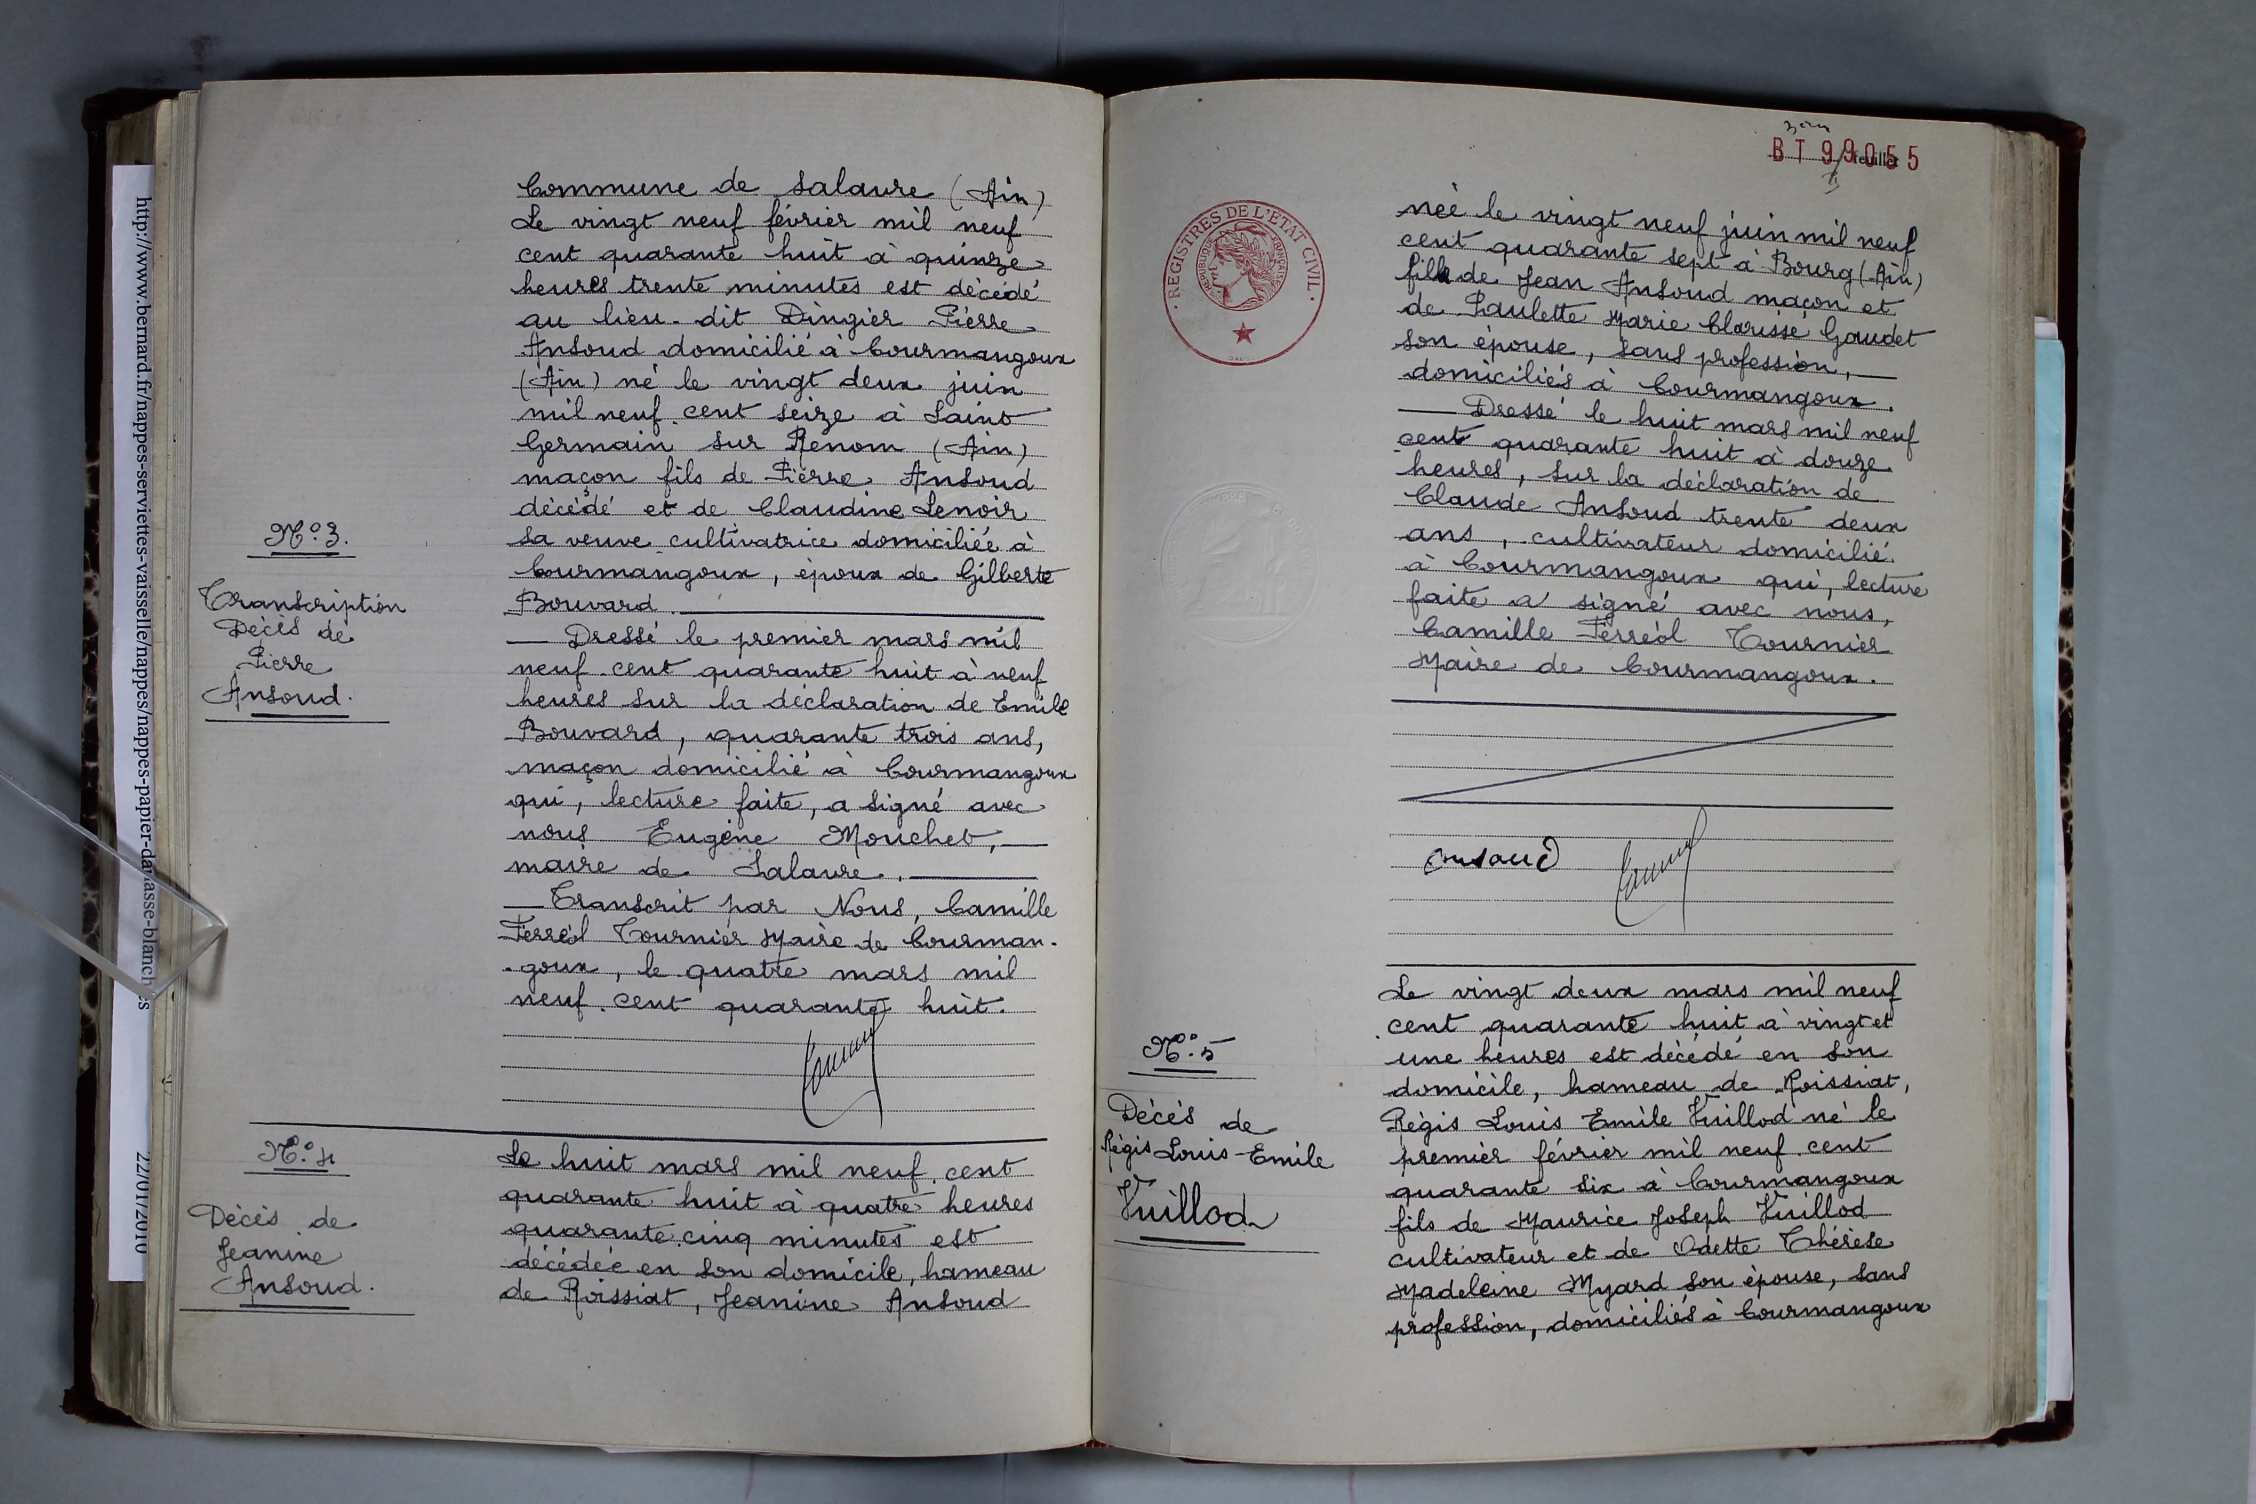 http://www.bernard.fr/nappes-serviettes-vaisselle/nappes/nappes-papier-damasse-blanches
22/01/2010
Commune de Salavre (Ain)
Le vingt neuf février mil neuf
cent quarante huit à quinze
heures trente minutes est décédé
au lieu-dit Dingier Pierre
Ansoud domicilié à Courmangoux
(Ain) né le vingt deux juin
mil neuf cent seize à Saint
Germain sur Renom (Ain)
maçon fils de Pierre Ansoud
décédé et de Claudine Lenoir
sa veuve cultivatrice domiciliée à
Courmangoux, époux de Gilberte
Bouvard.
Dressé le premier mars mil
neuf cent quarante huit à neuf
heures sur la déclaration de Emile
Bouvard, quarante trois ans,
maçon domicilié à Courmangoux
qui, lecture faite, a signé avec
nous Eugène Mouchet,
maire de Salavre.
Transcrit par Nous, Camille
Ferréol Tournier Maire de Courman-
-goux, le quatre mars mil
neuf cent quarante huit.
N°.3.
Transcription
Décès de
Pierre
Ansoud.
N°.4
Décès de
Jeanine
Ansoud.
Le huit mars mil neuf cent
quarante huit à quatre heures
quarante cinq minutes est
décédée en son domicile, hameau
de Roissiat, Jeanine Ansoud
BT 99055
feuillet
REGISTRES DE L'ETAT CIVIL
REPUBLIQUE FRANÇAISE
née le vingt neuf juin mil neuf
cent quarante sept à Bourg (Ain)
fille de Jean Ansoud maçon et
de Paulette Marie Clarisse Gaudet
son épouse, sans profession,
domiciliés à Courmangoux.
Dressé le huit mars mil neuf
cent quarante huit à douze
heures, sur la déclaration de
Claude Ansoud trente deux
ans, cultivateur domicilié
à Courmangoux qui, lecture
faite a signé avec nous,
Camille Ferréol Tournier
Maire de Courmangoux.
ansoud
N°.5
Décès de
Régis Louis-Emile
Vuillod
Le vingt deux mars mil neuf
cent quarante huit à vingt et
une heures est décédé en son
domicile, hameau de Roissiat,
Régis Louis Emile Vuillod né le
premier février mil neuf cent
quarante six à Courmangoux
fils de Maurice Joseph Vuillod
cultivateur et de Odette Thérèse
Madeleine Myard son épouse, sans
profession, domiciliés à Courmangoux